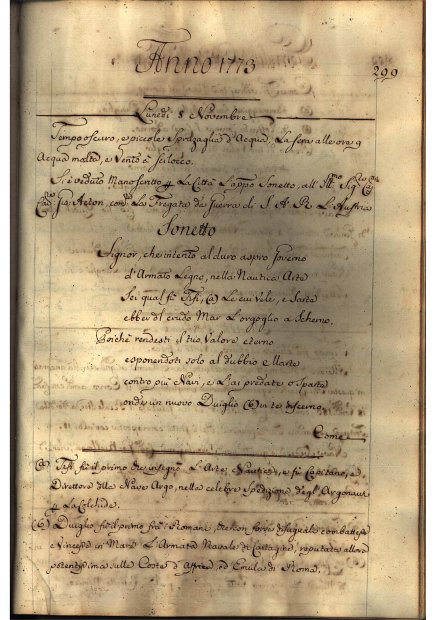 Anno 1773
299
Lunedì 8 Novembre
Tempo oscuro, e piccole Spruzzaglia d'Acqua, La sera alle ore 9
Acqua molta, e Vento a Scilocco.
Si è veduto Manoscritto p La Città L'app.o Sonetto, all' Ill.mo Sig.
Gio. Acton, com.te La Fregata da guerra di S. A. R. L. Austria
Sonetto
Signor, che intento al duro aspro Governo
d'Armato Legno, nella Nautica Arte
Sei qual fù Tifi, (a) Le cui Vele, e Sarte
ebber del crudo Mar L'orgoglio a Scherno.
Poichè rendesti il tuo Valore eterno
esponendoti solo al dubbio Marte
contro più Navi, e L'ai predate, o Sparte
onde un nuovo Duiglio (b) in te discerno
Come
(a) Tifi fù il primo che insegnò L'Arte Nautica, e fù Capitano, e
Direttore della Nave Argo, nella celebre Spedizione degl'Argonauti
p La Colchide.
(b) Duiglio fù il primo frà i Romani, che con forze disuguali combattesse
e vincesse in Mare L'Armata Navale di Cartagine, reputata allora
potentissima sulle Coste d'Affrica, ed Emula di Roma.